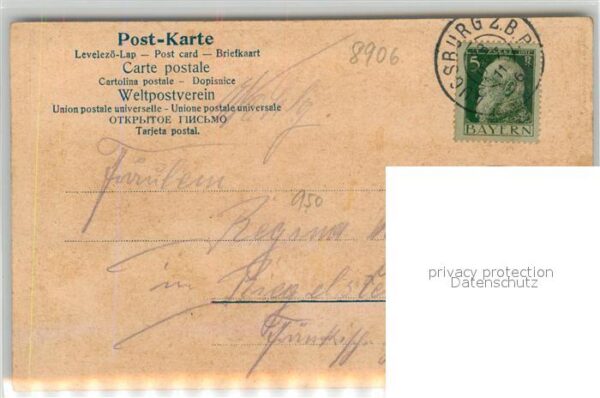 Post-Karte
Levelező-Lap — Post card — Briefkaart
Carte postale
Cartolina postale - Dopisnice
Weltpostverein
Union postale universelle - Unione postale universale
ОТКРЫТОЕ ПИСЬМО
Tarjeta postal.
8906
SBURG 2.B.P
5
BAYERN
Fräulein
950
Regina
in
privacy protection
Datenschutz